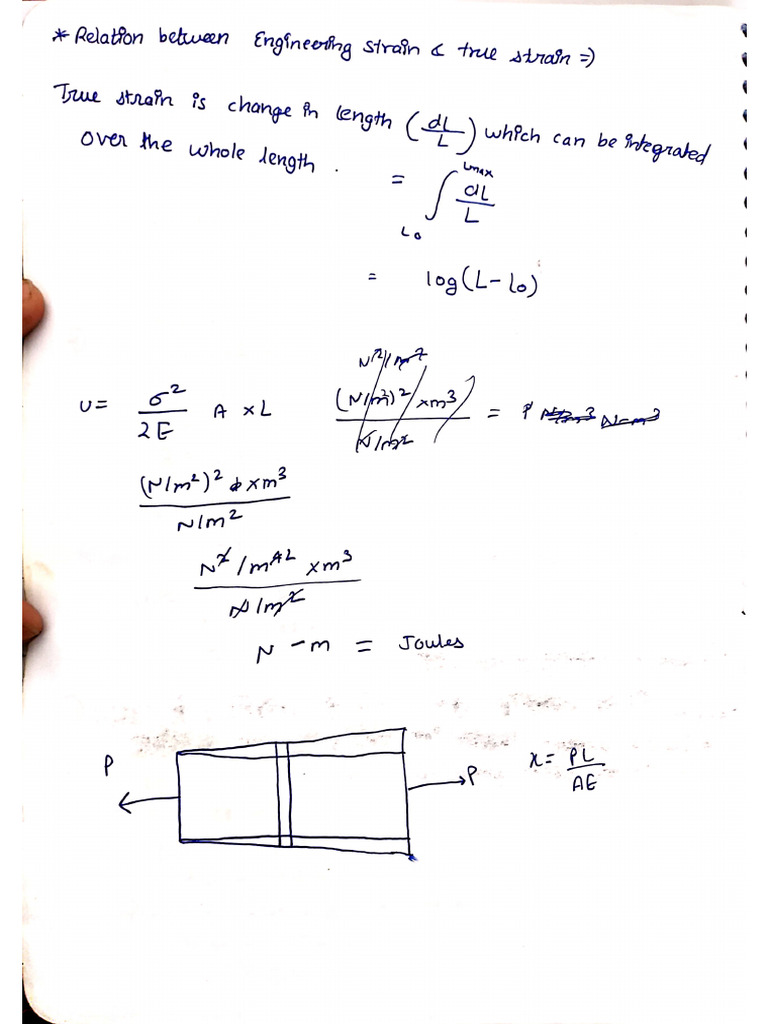 * Relation between Engineering strain & true strain =>
True strain is change in length (dL/L) which can be integrated
over the whole length.
= ∫ Lmax L0 dL/L
= log(L - lo)
U = σ²/2E A x L
(N/m²)² x m³ / N/m² =
(N/m²)² x m³ / N/m²
N² / m⁴ x m³ / N/m²
N - m = Joules
P
P
x = PL/AE